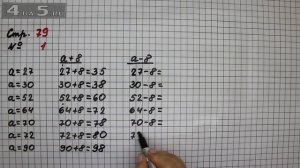 4 5
Стр. 79
№ 1
a+8 a-8
a=27 27+8=35 27-8=
a=30 30+8=38 30-8=
a=52 52+8=60 52-8=
a=64 64+8=72 64-8=
a=70 70+8=78 70-8=
a=72 72+8=80 7
a=90 90+8=98